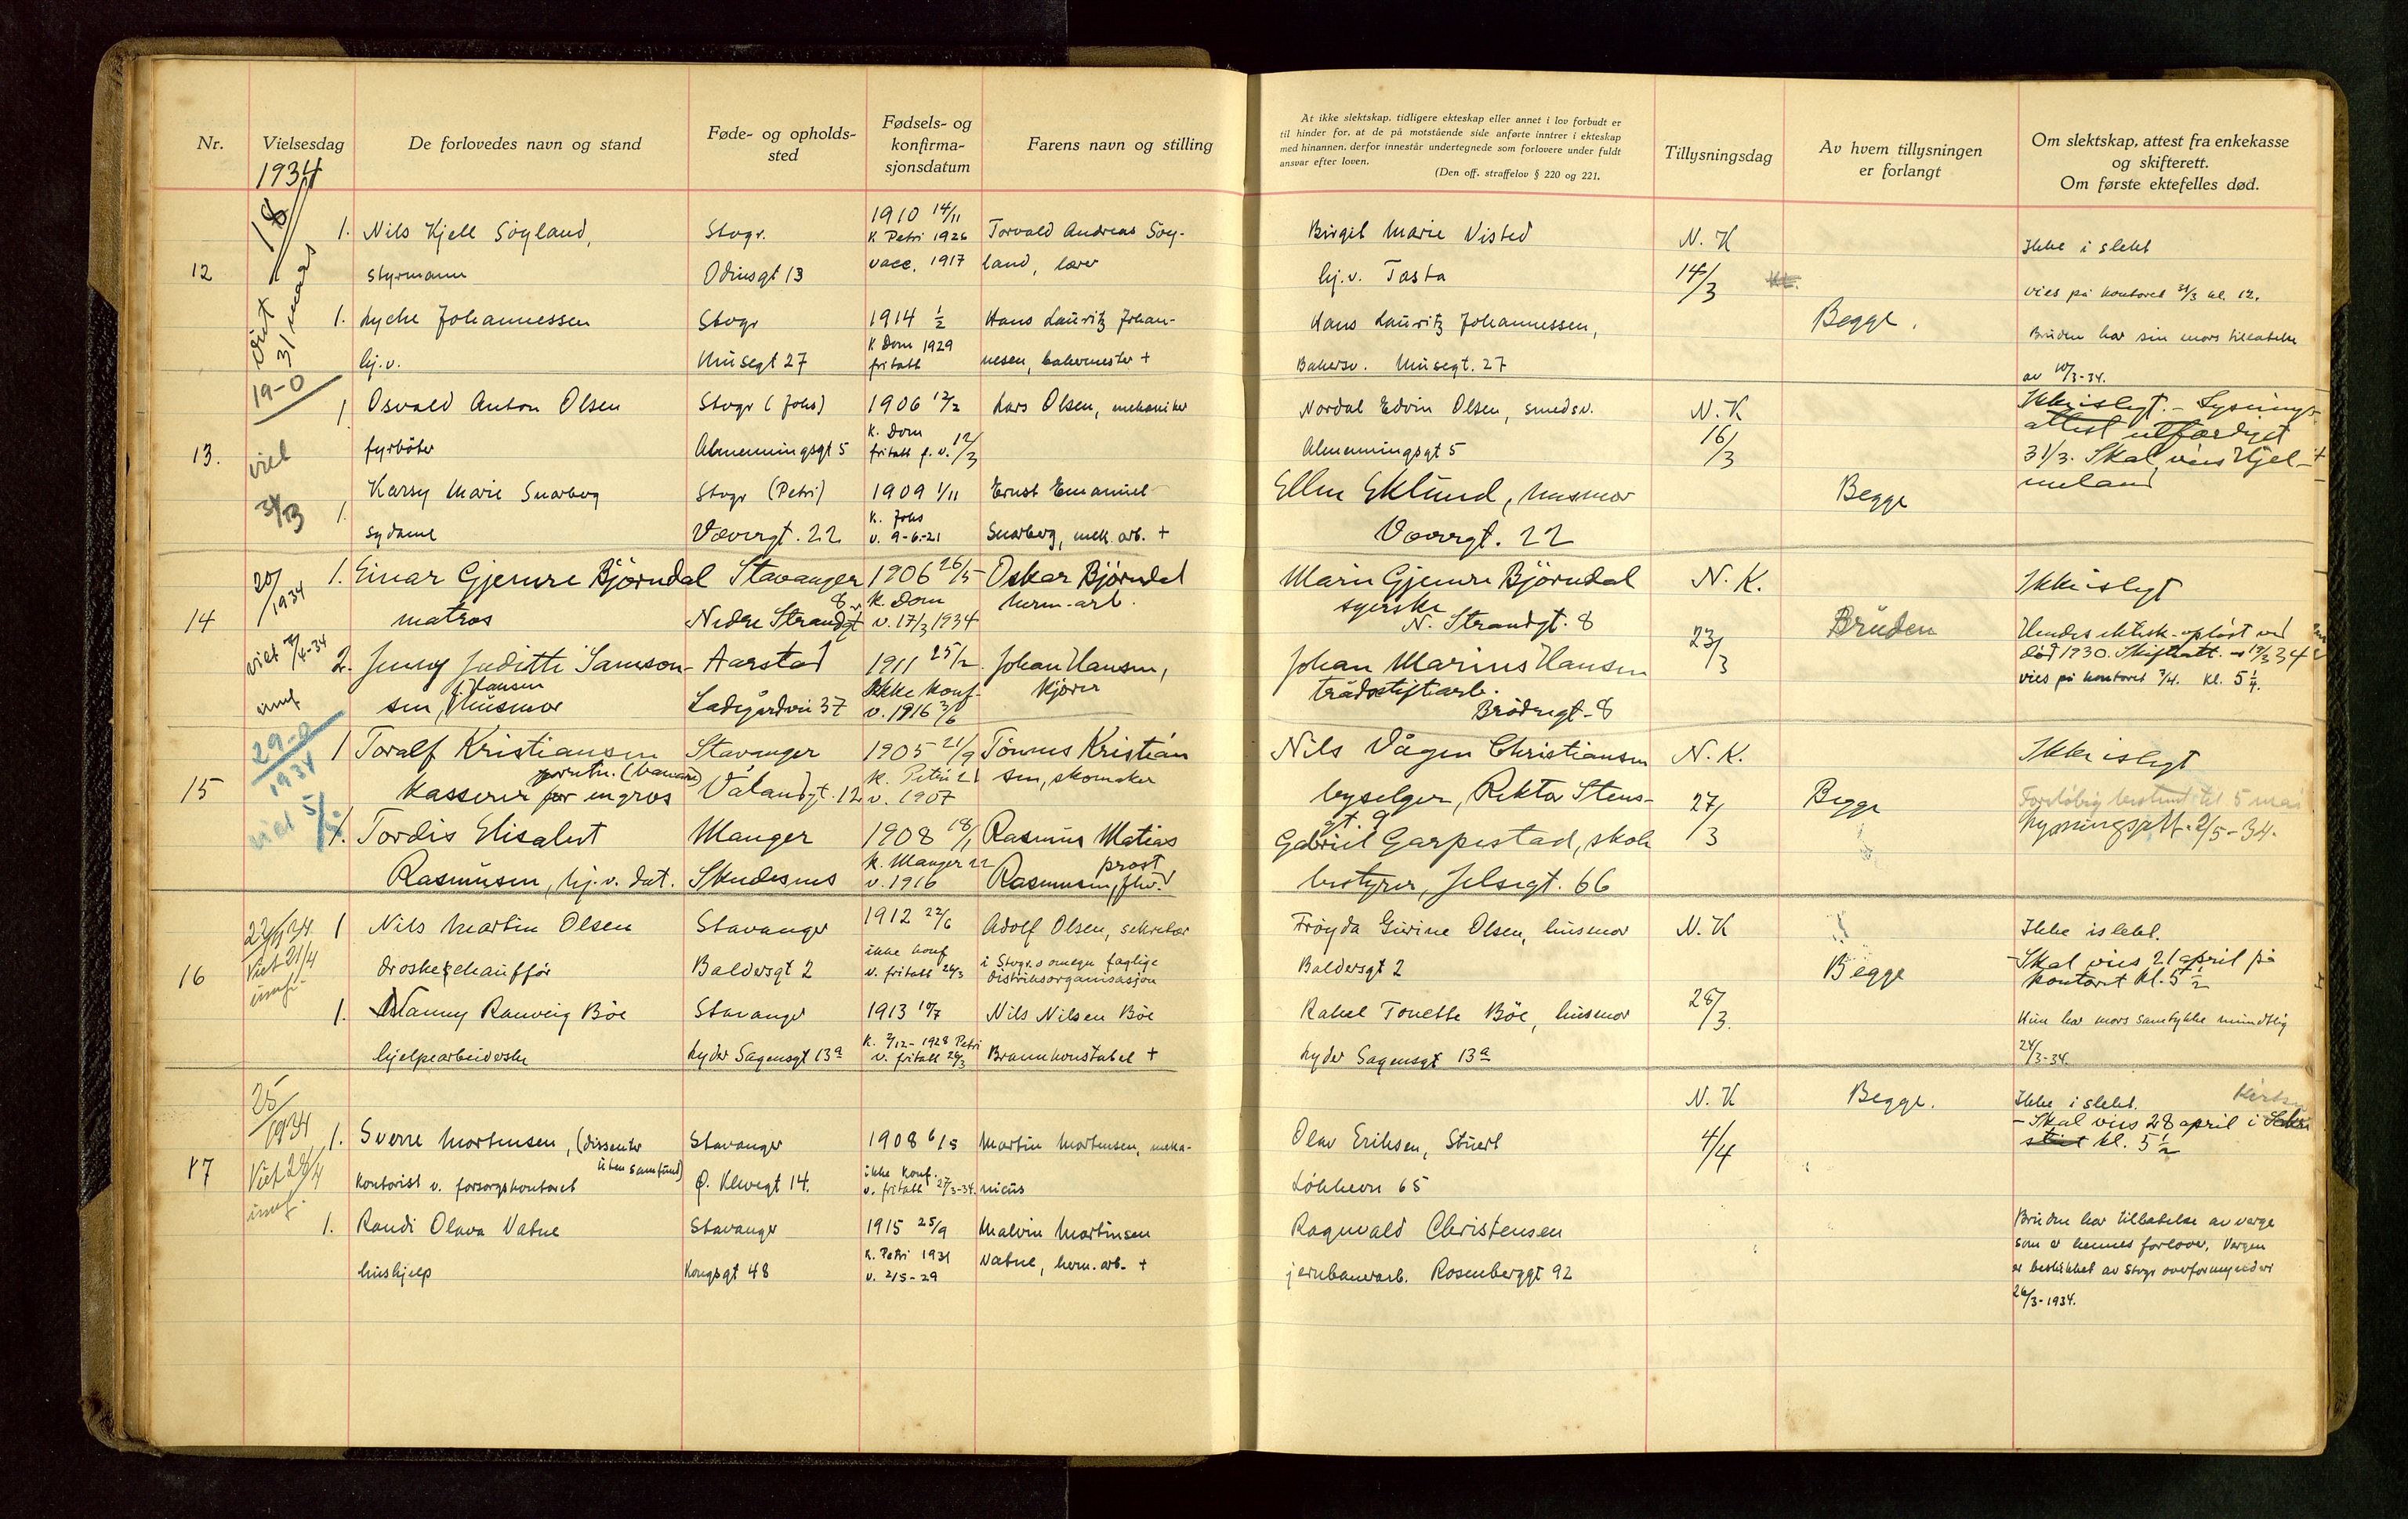 Nr.
Vielsesdag
De forlovedes navn og stand
Føde- og opholds-
sted
Fødsels- og
konfirma-
sjonsdatum
Farens navn og stilling
At ikke slektskap, tidligere ekteskap eller annet i lov forbudt er
til hinder for, at de på motstående side anførte inntrer i ekteskap
med hinannen, derfor innestår undertegnede som forlovere under fuldt
ansvar efter loven.
(Den off. straffelov § 220 og 221.
Tillysningsdag
Av hvem tillysningen
er forlangt
Om slektskap, attest fra enkekasse
og skifterett.
Om første ektefelles død.
1934
12
1. Nils Kjell Söyland,
styrmann
Stvgr.
Odinsgt 13
1910 14/11
K Petri 1926
vacc. 1917
Torvald Andreas Söy-
land, lærer
Birgit Marie Visted
hj.v. Tasta
N. K
14/3
Ikke i slekt
vies på kontoret 31/3 kl. 12.
viet
31 mars
1. Lyche Johannessen
hj.v.
Stvgr
Musegt 27
1914 1/2
K Dom 1929
fritatt
Hans Lauritz Johan-
nesen, bakermester +
Hans Lauritz Johannessen,
Bakersv. Musegt. 27
Begge.
Bruden har sin mors tillatelse
av 10/3-34.
13.
19-0
viet
31/3
1. Osvald Anton Olsen
fyrböter
Stvgr (Johs)
Almenningsgt 5
1906 12/2
K. Dom
fritatt f. v. 12/3
Lars Olsen, mekaniker
Nordal Edvin Olsen, smedsv.
Almenningsgt 5
N. K
16/3
Ikke islegt. - Lysnings-
attest utfærdiget
31/3. Skal vies Hjel-
meland
1. Karsy Marie Snarberg
sydame
Stvgr (Petri)
Væversgt. 22
1909 1/11
K. Johs
v. 9-6-21
Ernst Emanuel
Snarberg, mek. arb. +
Ellen Eklund, husmor
Væversgt. 22
Begge
14
20/1934
viet 7/4-34
1. Einar Gjemre Björndal
matros
Stavanger
Nedre Strandgt 8
1906 26/5
K. Dom
v. 17/3 1934
Oskar Björndal
herm.-arb.
Marie Gjemre Björndal
syerske
N. Strandgt. 8
N. K.
23/3
Bruden
Ikke islegt
Hendes ektesk. oplöst ved
död 1930. Skifteatt. 19/3 34
vies på kontoret 7/4. kl. 5 1/4.
2. Jenny Judith Samson-
sen, f. Hansen Husmor
Aarstad
Ladegårdvei 37
1911 25/2
Ikke konf
v. 1916 3/6
Johan Hansen,
kjører
Johan Marius Hansen
trådstiftarb.
Brödregt. 8
15
29-0
1934
viet 5/5
1 Toralf Kristiansen
Kasserer for engros
Stavanger
Vålandgt. 12
1905 21/9
K. Petri 21
v. 1907
Tönnes Kristian
sen, skomaker
Nils Vågen Christiansen
byselger, Rektor Stens-
gt. 9
N. K.
27/3
Begge
Ikke islegt
Foreløbig bestemt til 5 mai
Lysningsatt. 2/5-34.
1. Tordis Elisabet
Rasmussen, hj. v. dat.
Manger
Skudesnes
1908 18/1
K. Manger 22
v. 1916
Rasmus Matias
Rasmussen, prost
Gabriel Garpestad, skole
bestyrer, Jelsegt. 66
16
Viet 21/4
1 Nils Martin Olsen
droskechauffør
Stavanger
Baldersgt 2
1912 22/6
ikke konf
v. fritatt 26/3
Adolf Olsen, sekretær
i Stvgr. omegn faglige
distriktsorganisasjon
Fröyda Gurine Olsen, husmor
Baldersgt 2
N. K
28/3.
Begge
Ikke islekt.
- Skal vies 21 april på
kontoret kl. 5 1/2
1. Nanny Ranveig Böe
hjelpearbeiderske
Stavanger
Lyder Sagensgt 13a
1913 10/7
K. 2/12-1928 Petri
v. fritatt 26/3
Nils Nilsen Böe
Brannkonstabel +
Rakel Tonette Böe, husmor
Lyder Sagensgt 13a
Hun har mors samtykke mundtlig
24/3-34.
17
25/1934
Viet 28/4
1. Sverre Mortensen, (dissenter
uten samfund)
kontorist v. forsorgskontoret
Stavanger
Ø. Klevegt 14.
1908 6/5
ikke konf.
v. fritatt 27/3-34.
Martin Mortensen, meka-
nicus
Olav Eriksen, Stuert
Lökkevn 65
N. K
4/4
Begge.
Ikke i slekt.
- Skal vies 28 april i
kl. 5 1/2
1. Randi Olava Vatne
hushjelp
Stavanger
Kongsgt 48
1915 25/9
K. Petri 1931
v. 2/5-29
Malvin Martinsen
Vatne, herm. arb. +
Ragnvald Christensen
jernbanearb. Rosenberggt 92
Bruden har tillatelse av verge
som er hennes forlover, Vergen
er beskikket av Stvgr overformynderi
26/3-1934.